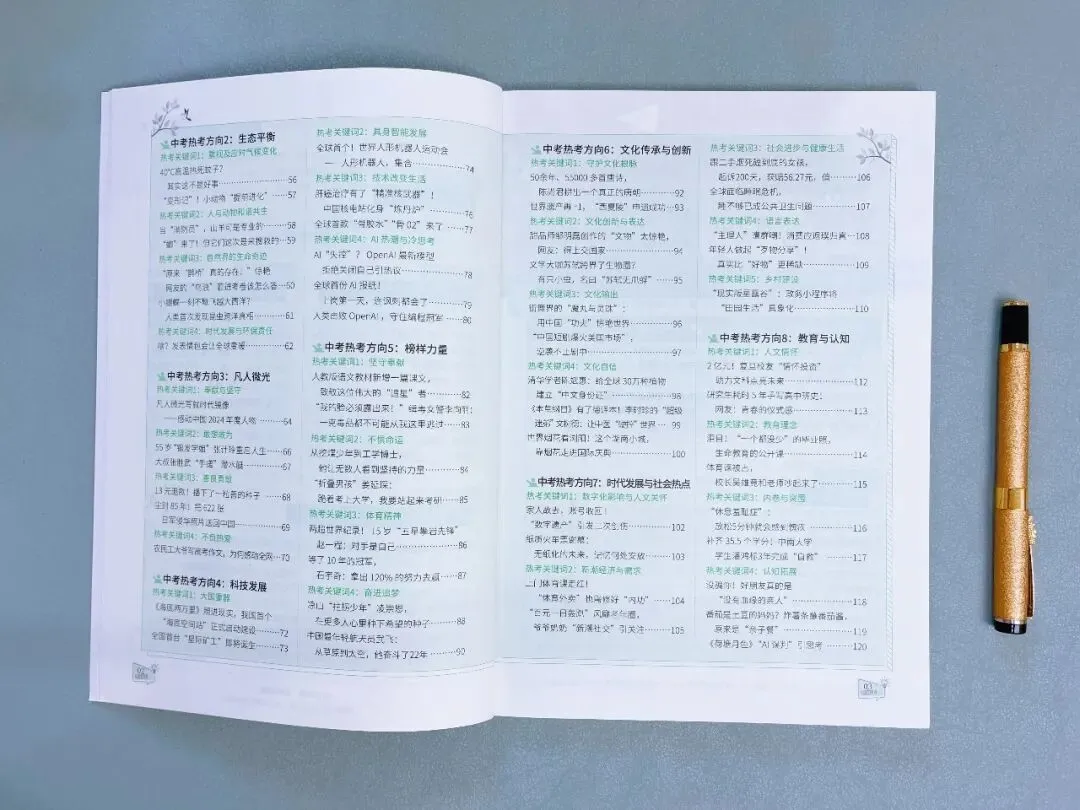 中考热考方向2：生态平衡
热考关键词1：景观及应对气候变化
40℃高温热死蚊子？
其实这不是好事……56
“变形记”！小动物“提前进化”……57
热考关键词2：人与动物和谐共生
当“消防员”，山羊可是专业的……58
热考关键词3：自然界的生命奇迹
“原来‘鹊桥’真的存在！”惊艳
小蝴蝶一刻不歇飞越大西洋？
人类首次发现昆虫跨洋真相……61
热考关键词4：时代发展与环保责任
啥？发表情包会让全球变暖……62
中考热考方向3：凡人微光
热考关键词1：奉献与坚守
凡人微光写就时代镜像
——感动中国2024年度人物……64
热考关键词2：敢想敢为
55岁“银发学姐”张计玲重启人生……66
大叔张胜武“手搓”潜水艇……67
热考关键词3：善良勇敢
13元退款！播下了一粒善的种子……68
尘封85年！把622张
日军侵华照片送回中国……69
热考关键词4：不负热爱
农民工大爷写高考作文，为何感动全网…70
中考热考方向4：科技发展
热考关键词1：大国重器
《海底两万里》照进现实，我国首个
“海底空间站”正式启动建设……72
全国首台“星际矿工”即将诞生……73
热考关键词2：具身智能发展
全球首个！世界人形机器人运动会
——人形机器人，集合……74
热考关键词3：技术改变生活
肝癌治疗有了“精准核武器”！
中国核电站化身“炼丹炉”……76
全球首款“骨胶水”“骨02”来了……77
热考关键词4：AI热潮与冷思考
AI“失控”？OpenAI最新模型
拒绝关闭自己引热议……78
全球首份AI报纸！
上岗第一天，连讽刺都会了……79
人类击败OpenAI，守住编程冠军……80
中考热考方向5：榜样力量
热考关键词1：坚守奉献
人教版语文教材新增一篇课文，
致敬这位伟大的“追星”者……82
“我的脸必须露出来！”缉毒女警李向轩：
一克毒品都不可能从我这里逃过……83
热考关键词2：不惧命运
从挖煤少年到工学博士，
他让无数人看到坚持的力量……84
“折叠男孩”姜延琛：
跪着考上大学，我要站起来考研……85
热考关键词3：体育精神
两超世界纪录！15岁“五星举岩先锋”
赵一程：对手是自己……86
等了10年的冠军，
石宇奇：拿出120%的努力去赢……87
热考关键词4：奋进追梦
凉山“拄拐少年”凌崇恩，
在更多人心里种下希望的种子……88
中国最年轻航天员武飞：
从草原到太空，他奋斗了22年……90
02
中考热考方向6：文化传承与创新
热考关键词1：守护文化根脉
50余年、55000多首唐诗，
陈尚君拼出一个真正的唐朝……92
世界遗产再+1，“西夏陵”申遗成功…93
热考关键词2：文化创新与表达
网友：得上交国家……94
文学大咖苏轼跨界了生物圈？
有只小虫，名曰“苏轼无爪螨”……95
热考关键词3：文化输出
用中国“功夫”惊艳世界……96
“中国短剧爆火美国市场”，
逆袭不止剧中……97
热考关键词4：文化自信
建立“中文身份证”……98
《本草纲目》有了德译本！李时珍的“超级
世界烟花看浏阳！这个湖南小城，
靠烟花走进国际庆典……100
中考热考方向7：时代发展与社会热点
热考关键词1：数字化影响与人文关怀
家人故去，账号收回！
“数字遗产”引发二次创伤……102
纸质火车票谢幕：
无纸化的未来，记忆何处安放……103
热考关键词2：新潮经济与需求
上门体育课走红！
“体育外卖”也需修好“内功”……104
“百元一日轰趴”风靡老年圈，
爷爷奶奶“新潮社交”引关注……105
热考关键词3：社会进步与健康生活
跟二手烟死磕到底的女孩，
起诉200天，获赔56.27元，值……106
全球面临睡眠危机，
睡不够已成公共卫生问题……107
热考关键词4：语言表达
年轻人做起“歹物分享”！
真实比“好物”更稀缺……109
热考关键词5：乡村建设
“田园生活”具象化……110
中考热考方向8：教育与认知
热考关键词1：人文情怀
2亿元！复旦校友“情怀投资”
助力文科点亮未来……112
研究生耗时5年手写高中历史：
网友：青春的仪式感……113
热考关键词2：教育理念
泪目！“一个都没少”的毕业照，
生命教育的公开课……114
体育课被占，
校长吴维竟和老师吵起来了……115
热考关键词3：内卷与突围
“休息羞耻症”：
放松5分钟就会感到愧疚……116
补齐35.5个学分！中南大学
学生潘鸿标3年完成“自救”……117
热考关键词4：认知拓展
没骗你！好朋友真的是
“没有血缘的亲人”……118
番茄是土豆的妈妈？炸薯条蘸番茄酱，
原来是“亲子餐”……119
《荷塘月色》“AI误判”引思考……120
03